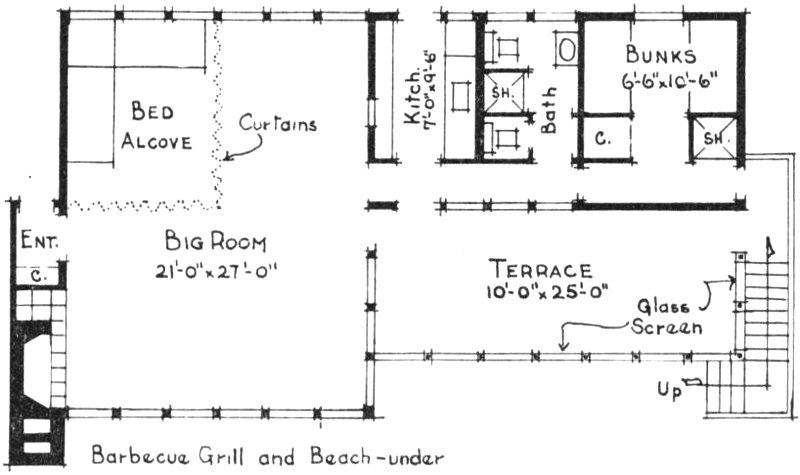 BED
ALCOVE
Curtains
Kitch.
7'-0"x9'-6"
SH.
Bath
BUNKS
6'-6"x10'-6"
C.
SH.
ENT.
C.
BIG ROOM
21'-0"x27'-0"
TERRACE
10'-0"x25'-0"
Glass
Screen
Up
Barbecue Grill and Beach-under